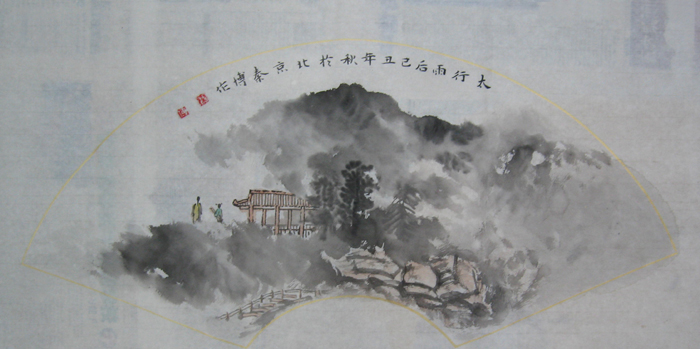 太行雨后己丑年秋於北京秦博作